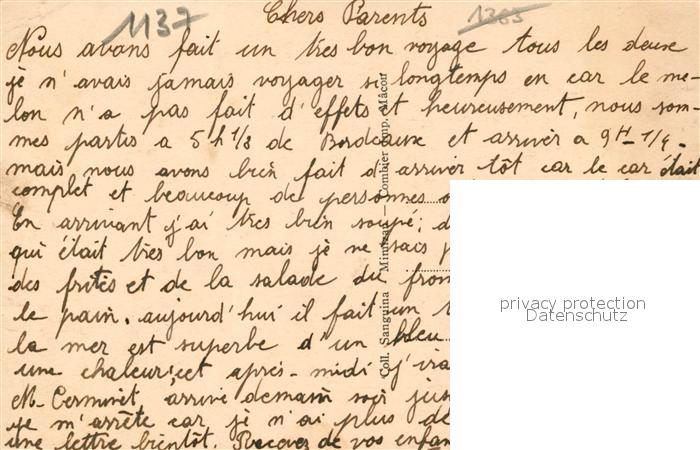 1137
1365
Chers Parents
Nous avons fait un très bon voyage tous les deux
je n'avais jamais voyager si longtemps en car le me-
lon n'a pas fait d'effets et heureusement, nous som-
mes partis a 5h 1/2 de Bordeaux et arriver a 9H 1/4 -
mais nous avons bien fait d'arriver tôt car le car était
complet et beaucoup de personnes
En arrivant j'ai très bien soupé; d
qui était très bon mais je ne sais p
des frites et de la salade du from
le pain. aujourd'hui il fait un t
la mer est superbe d'un bleu
une chaleur; cet après-midi j'ira
M. arrive demain soir jus
je m'arrête car je n'ai plus de
une lettre bientôt. Recevez de vos enfan
Coll. Sanguina Mimizan — Combier imp. Mâcon
privacy protection
Datenschutz